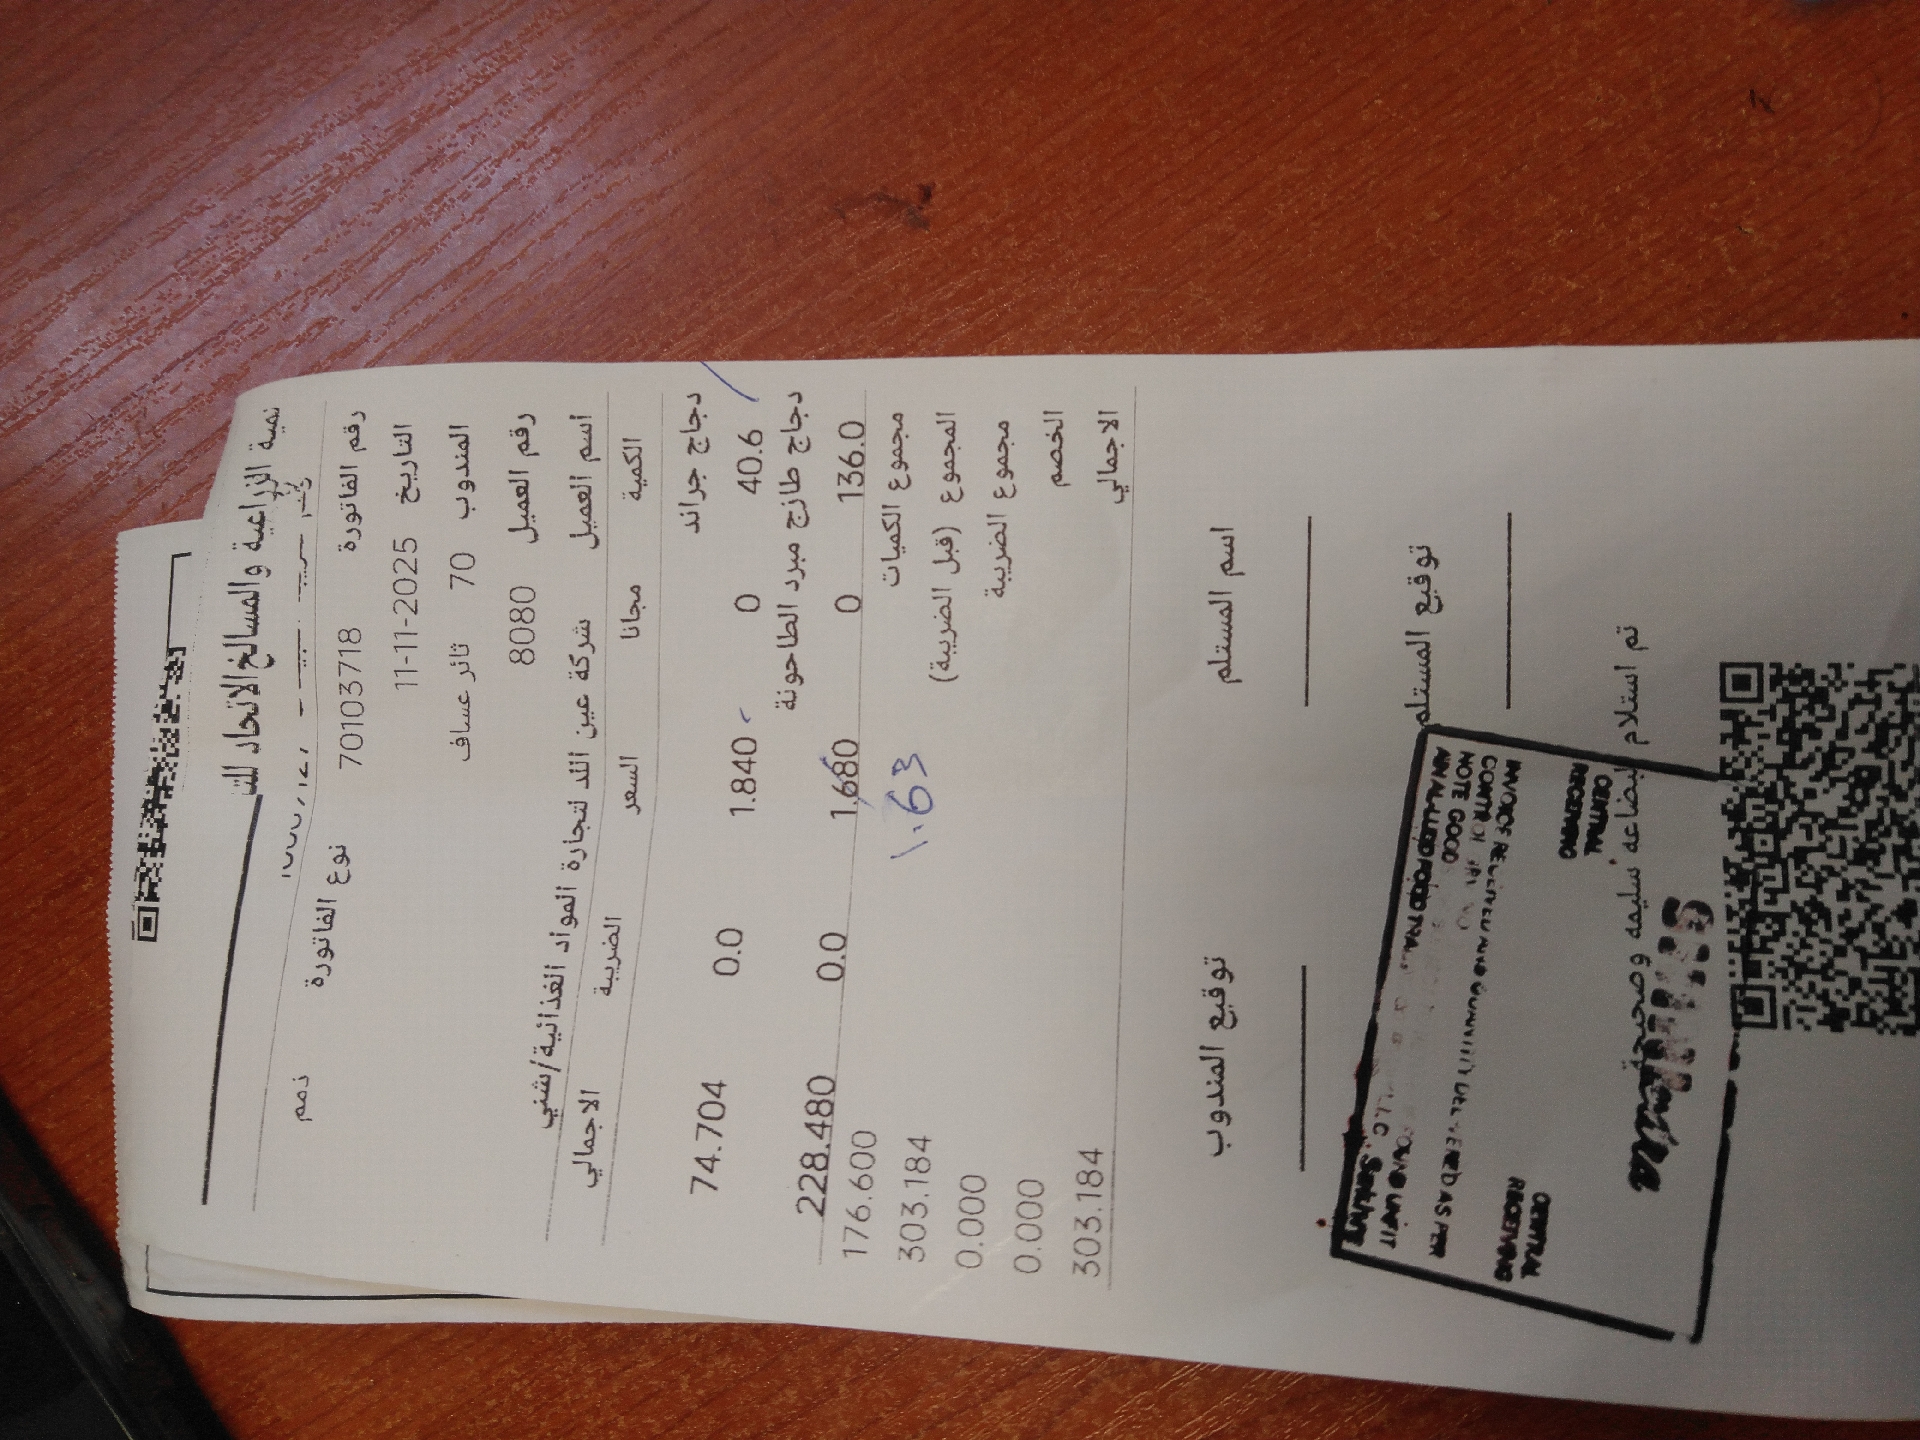 نمية الزراعية والمسالخ الاتحاد للت
رقم الفاتورة 70103718 نوع الفاتورة ذمم
التاريخ 11-11-2025
المندوب 70 ثائر عساف
رقم العميل 8080
اسم العميل شركة عين اللد لتجارة المواد الغذائية/شني
الكمية مجانا السعر الضريبة الاجمالي
دجاج جراند
40.6 0 1.840 0.0 74.704
دجاج طازج مبرد الطاحونة
136.0 0 1.680 0.0 228.480
1.63
مجموع الكميات 176.600
المجموع (قبل الضريبة) 303.184
مجموع الضريبة 0.000
الخصم 0.000
الاجمالي 303.184
اسم المستلم توقيع المندوب
توقيع المستلم
NOTE GOOD FOUND UNFIT
INVOICE RECEIVED AND QUANTITY DELIVERED AS PER
CENTRAL RECEIVING
CENTRAL RECEIVING
تم استلام بضاعه سليمه وصحيحة